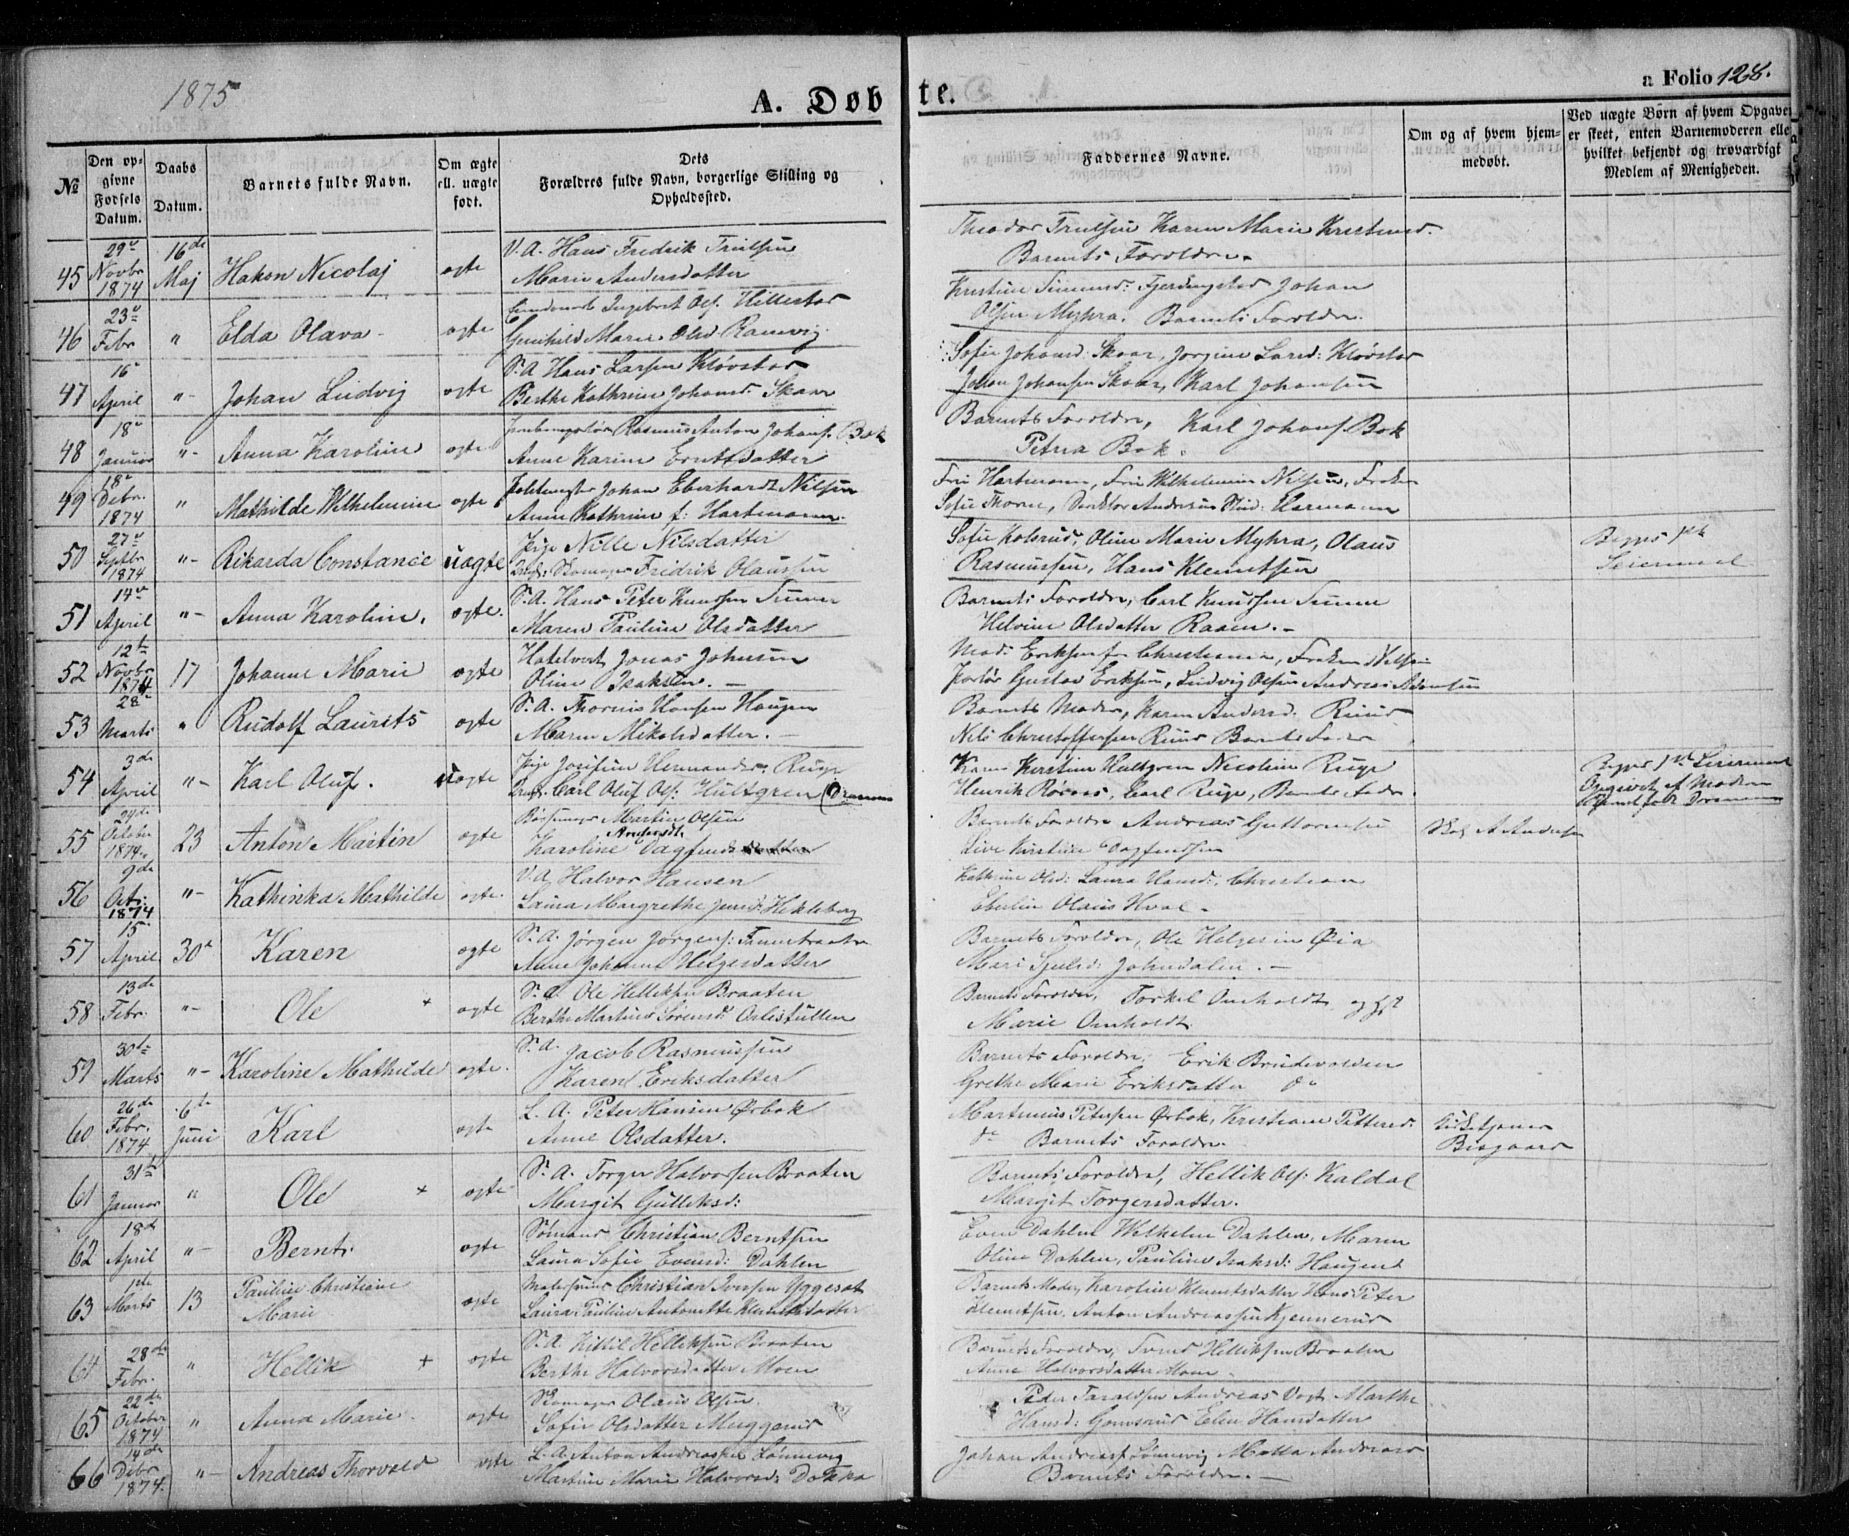 1875
A. Døbte.
a Folio 128.
№
Den opgivne Fødsels Datum.
Daabs Datum.
Barnets fulde Navn.
Om ægte ell. uægte født.
Dets Forældres fulde Navn, borgerlige Stilling og Opholdssted.
Faddernes Navne.
Om og af hvem hjemmedøbt.
Ved uægte Børn af hvem Opgaven er skeet, enten Barnemoderen eller hvilket bekjendt og troværdigt Medlem af Menigheden.
45 29 Novbr 1874 16de Maj Hakon Nicolaj ægte V.A. Hans Fredrik Trulsen
Marie Andersdatter
Theodor Trulsen Karen Marie Kristensd.
Barnets Forældre.
46 23 Febr " Elda Olava ægte Ingebret Ols. Hillestad
Gunhild Marie Olsd Ramvig
Kristine Simensd: Fjerdingstad Johan
Olsen Myhra. Barnets Forældre.
47 16 April " Johan Ludvig ægte S.A Hans Larsen Kløvstad
Berthe Kathrine Johansd. Skaar
Sofie Johansd: Skaar, Jørgine Larsd: Kløvstad
Johan Johansen Skaar, Karl Johansen
48 18 Januar " Anna Karoline ægte Rasmus Anton Johans. Bok
Anne Karine Erntsdatter
Barnets Forældre, Karl Johans. Bok
Petrea Bok.
49 18 Debr. 1874 " Mathilde Wilhelmine ægte Johan Eberhardt Nilsen
Anne Kathrine f: Hartmann.
Fru Hartmann, Fru Wilhelmine Nilsen, Frøken
Sofie Thorne, Andersen Stud: Harmann
50 27 Septbr 1874 " Rikarda Constance uægte Pige Nille Nilsdatter
Skomager Fridrik Olaussen
Sofie Kolsrud, Oline Marie Myhra, Olaus
Rasmussen, Hans Klemetsen
Begges 1ste
Leiermaal
51 14de April " Anna Karoline. ægte. S.A. Hans Peter Knudsen
Maren Pauline Olsdatter
Barnets Forældre, Carl Knudsen
Helvine Olsdatter Raaen.
52 12te Novbr 1874 17 Johanne Marie ægte Hotelvert Jonas Johnsen
Oline Isaksen.
Mad: Eriksen fra Christiania, Frøken Nilsen
Gustav Eriksen, Ludvig Olsen Andreas Adamsen
53 28 Marts " Rudolf Laurits ægte S.A. Thorvius Hansen Haugen
Maren Mikelsdatter.
Barnets Moder, Karen Andersd. Ruud
Nils Christoffersen Ruud Barnets Fader
54 3de April " Karl Oluf. uægte Pige Josefine Hermansd: Ruge
Carl Oluf Ols: Hultgren (Drammen
Kirstine Hultgren Nicoline Ruge
Henrik Røraas, Carl Ruge, Barnets Fader
Begges 1ste Leiermaal
Opgivet af Moderen
Barnet født Drammen
55 29de October 1874. 23 Anton Martin ægte Bøssemager Martin Olsen
Karoline Dagfinds
Barnets Forældre Andreas Guttormsen
Live Kirstine Dagfindsen
A Andersen
56 9de Octr. 1874 " Kathinka Mathilde ægte V.A Halvor Hansen
Laura Margrethe Jensd: Hekleberg
Kathrine Olsd: Laura Hansd: Christian
Olaus Hval.
57 15 April 30 Karen ægte S.A. Jørgen Jørgens:
Anne Johanne Helgesdatter
Barnets Forældre, Ole Helgesen Øia
Mari Johnsdalen.
58 13de Febr. " Ole + ægte S.A. Ole Helliksen Braaten
Berthe Martine Sørensd: Orlistullen
Barnets Forældre, Torkel Omholdt og
Marie Omholdt
59 30te Marts " Karoline Mathilde ægte. S.A. Jacob Rasmussen
Karen Eriksdatter
Barnets Forældre, Erik Brudevolden
Grethe Marie Eriksdatter do
60 26de Febr. 1874 6te Juni Karl ægte L.A. Peter Hansen Ørbok
Anne Olsdatter.
Martinius Petersen Ørbok, Kristiane Pettersd:
do Barnets Forældre.
Kirketjener
Bisgaard
61 31te Januar " Ole + ægte S.A. Torger Halvorsen Braaten
Margit Gulliksd:
Barnets Forældre, Hellik Ols: Kaldal
Margit Torgersdatter.
62 18de April " Bernt. ægte Sømand Christian Berntsen
Laura Sofie Evensd: Dahlen
Even Dahlen Wilhelm Dahlen, Maren
Oline Dahlen, Pauline Isaksd: Haugen
63 1ste Marts 13 Pauline Christiane
Marie
ægte Christian Iversen Yggeset
Laura Pauline Antonette Klemetsdatter
Barnets Moder, Karoline Klemetsdatter Hans Peter
Klemetsen, Anton Andreassen Kjennerud
64 28de Febr. " Hellik + ægte S.A Kittil Helliksen Braaten
Berthe Halvorsdatter Moen
Barnets Forældre, Helliksen Braaten
Anne Halvorsdatter Moen
65 22de October 1874 " Anna Marie. ægte Skomager Olaus Olsen
Sofie Olsdatter Muggerud
Peder Taraldsen Andreas Vogt Marthe
Hansd: Gomsrud Elen Hansdatter
66 14de Debr 1874. " Andreas Thorvald ægte L.A. Anton Andreassen Lønnevig
Martine Marie Halvorsd: Dokka
Johan Andreass. Lønnevig Andreasd
Barnets Forældre.